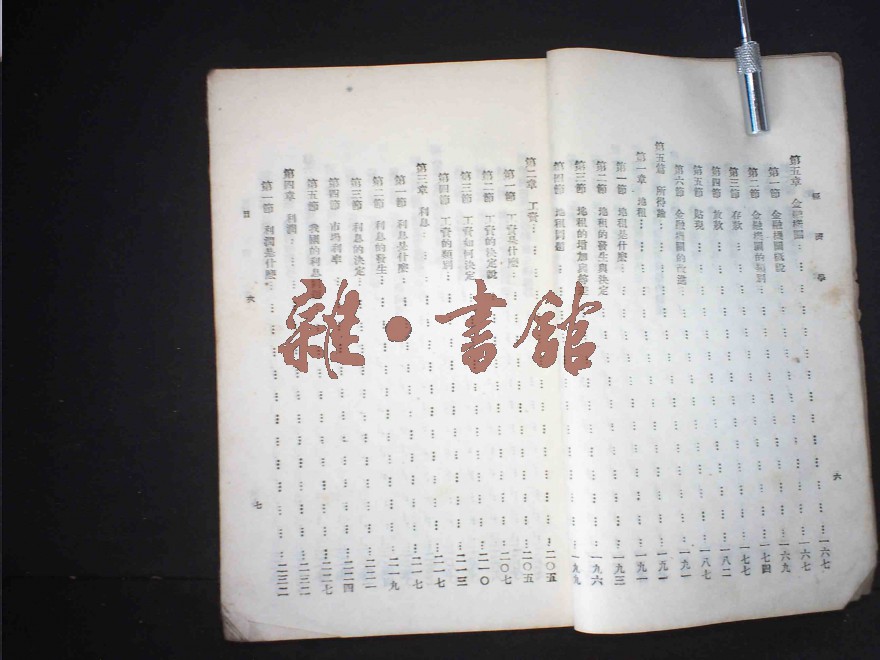 經濟學
六
第五章 金融機關…一六七
第一節 金融機關概說…一六七
第二節 金融機關的類別…一六九
第三節 存款…一七四
第四節 放款…一七七
第五節 貼現…一八二
第六節 金融機關的改進…一八七
第五篇 所得論…一九一
第一章 地租…一九一
第一節 地租是什麼…一九一
第二節 地租的發生與決定…一九三
第三節 地租的增加與…一九六
第四節 地租問題…一九九
第二章 工資…二〇五
第一節 工資是什麼…二〇五
第二節 工資的決定說…二〇七
第三節 工資如何決定…二一〇
第四節 工資的類別…二一三
第三章 利息…二一七
第一節 利息是什麼…二一七
第二節 利息的發生…二一九
第三節 利息的決定…二二一
第四節 市場利率…二二四
第五節 我國的利息…二二七
第四章 利潤…二三二
第一節 利潤是什麼…二三二
目 次
七
雜·書館